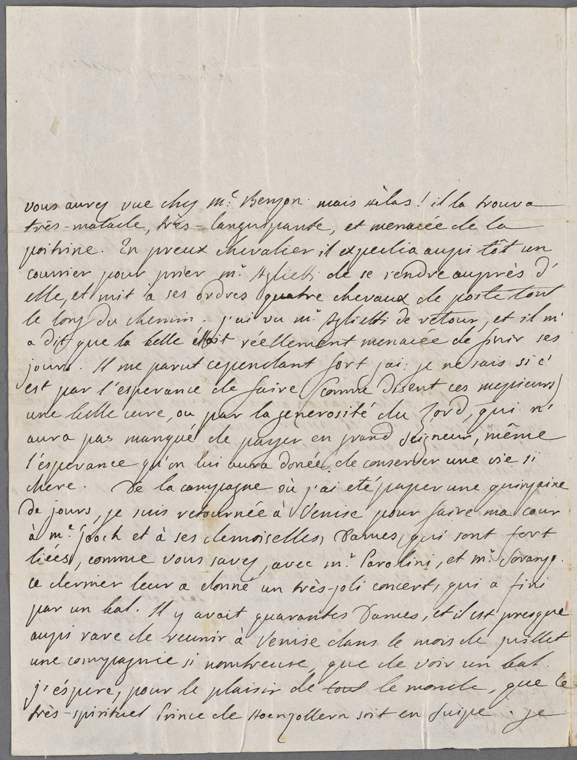 vous aurez vue chez M.e Benzon mais hèlas! il la trouva
très-malade, très-languissante, et menacée de la
poitrine. En preux chevalier il expedia aussi tôt un
courrier pour prier M.r Aglietti de se rendre auprès d'
elle, et mit à ses ordres quatre chevaux de poste tout
le long du chemin. j'ai vu M.r Aglietti de retour, et il m'
a dit que la belle étoit réellement menacée de finir ses
jours. Il me parut cependant fort jai: je ne sais si c'
est par l'esperance de faire (comme disent ces messieurs)
une belle cure, ou par la génerosité du Lord, qui n'
aura pas manqué de payer en grand Seigneur, même
l'esperance qu'on lui aura donée de conserver une vie si
chere. De la campagne où j'ai eté passer une quinzaine
de jours, je suis retournée à Venise pour faire ma cour
à M.e Gooch et à ses demoiselles, Dames, qui sont fort
liées, comme vous savez, avec M.r Parolini, et M.r Soranzo.
ce dernier leur a donné un très-joli concert, qui a fini
par un bal. Il y avait quarantes Dames, et il est presque
aussi rare de reunir à Venise dans le mois de juillet
une compagnie si nombreuse, que de voir un bal.
j'espere, pour le plaisir de tout le monde, que le
très-spirituel Prince de Hoenzollern soit en Suisse. je